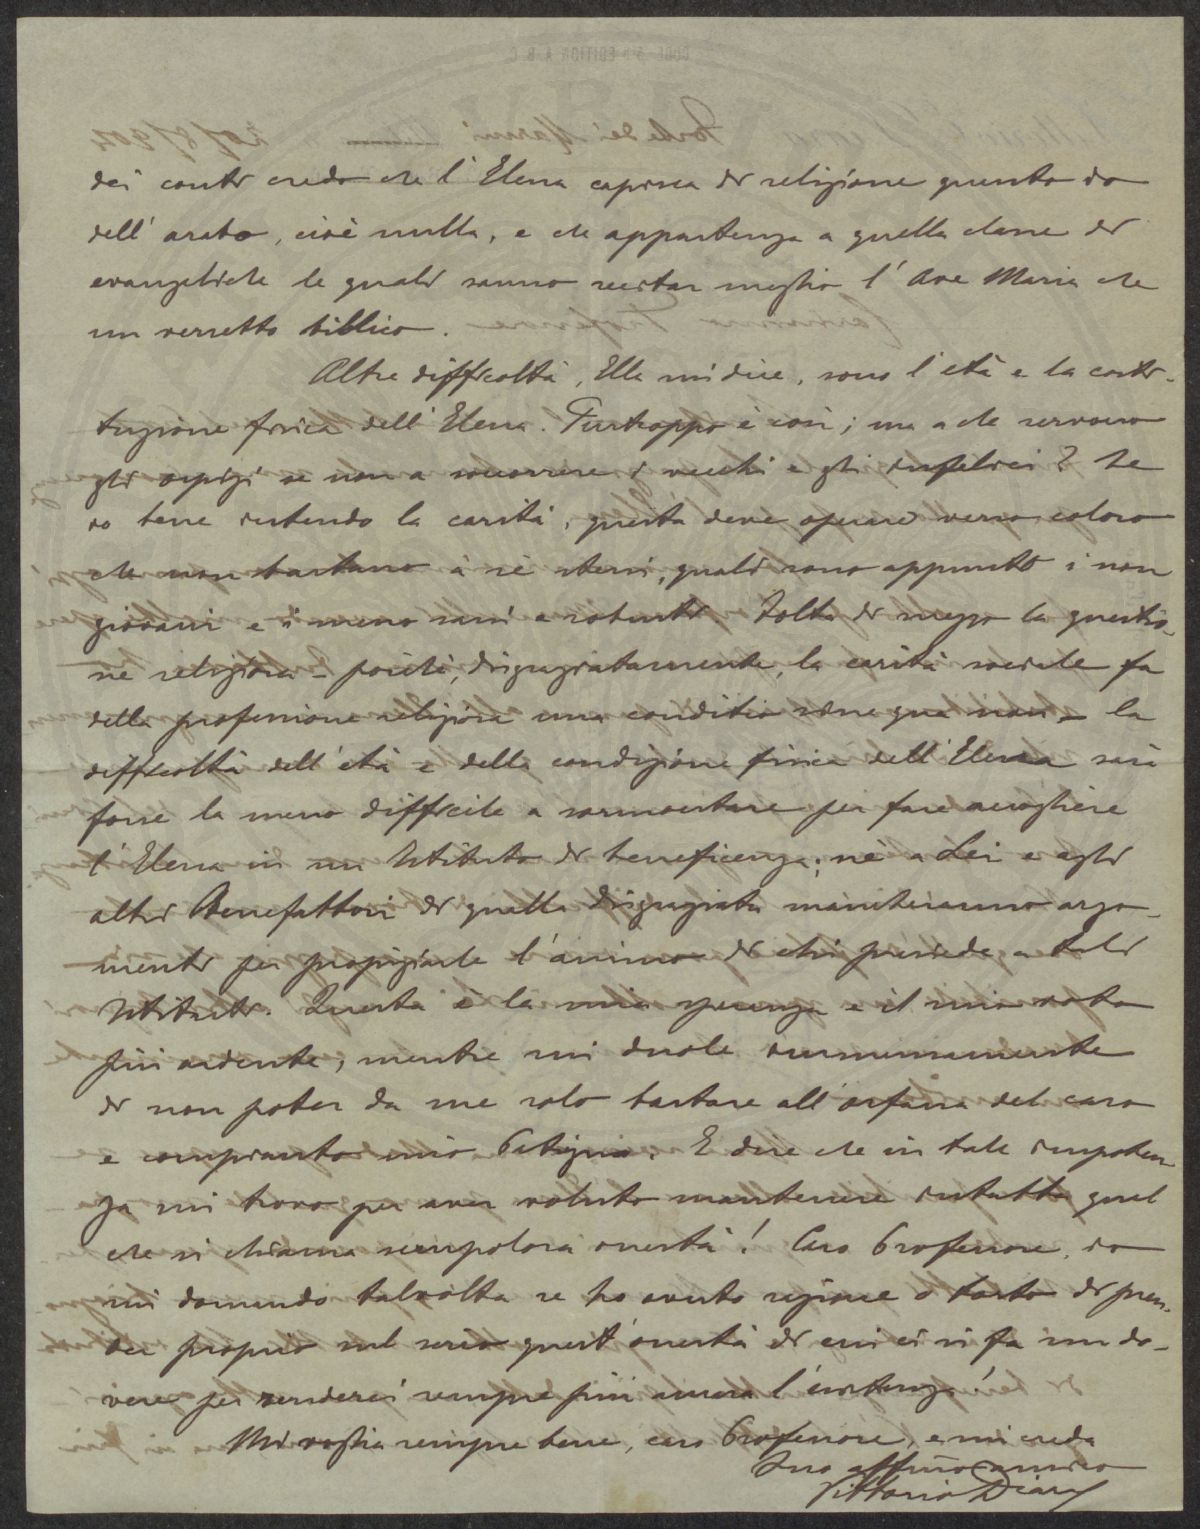 dei conti credo che l'Elena capisca di religione quanto io
dell'arabo, cioè nulla, e che appartenga a quella classe di
evangeliche le quali sanno recitar meglio l'Ave Maria che
un versetto biblico.
Altre difficoltà, Ella mi dice, sono l'età e la costi-
tuzione fisica dell'Elena. Purtroppo è così; ma a che servono
gli ospizi se non a soccorrere i vecchi e gli infelici? Se
io bene intendo la carità, questa deve operare verso coloro
che non bastano a sè stessi, quali sono appunto i non
giovani e i meno sani e robusti. Tolta di mezzo la questio-
ne religiosa - poichè, disgraziatamente, la carità sociale fa
della professione religiosa una conditio sine qua non - la
difficoltà dell'età e della condizione fisica dell'Elena sarà
forse la meno difficile a sormontare per fare accogliere
l'Elena in un Istituto di beneficenza; nè a Lei e agli
altri Benefattori di quella disgraziata mancheranno argo-
menti per propiziarle l'animo di chi presiede a tali
Istituti. Questa è la mia speranza e il mio voto
più ardente, mentre mi duole immensamente
di non poter da me solo bastare all'orfana del caro
e compianto mio. E dire che in tale impoten-
za mi trovo per aver voluto mantenere intatta quel
che si chiama scrupolosa onestà! Caro Professore, io
mi domando talvolta se ho avuto ragione o torto di pren-
der proprio sul serio quest'onestà di cui ci si fa un do-
vere per renderci sempre più amara l'esistenza!
Mi voglia sempre bene, caro Professore, e mi creda
Suo affmo amico
Vittorio